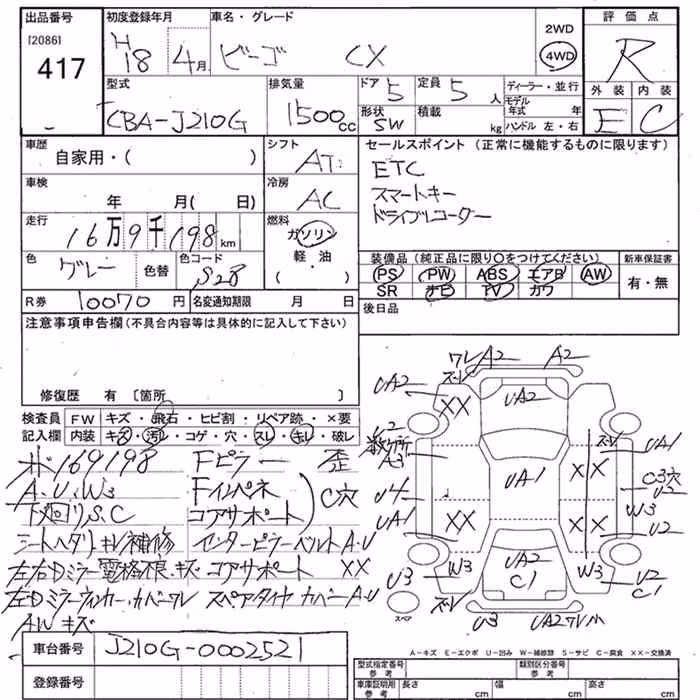 出品番号 初度登録年月 車名・グレード 2WD 評価点
[2086] H18 4月 ビーゴ CX 4WD R
417
型式 排気量 ドア 定員 ディーラー・並行 外装 内装
CBA-J210G 1500cc 5 5人 モデル年式 年 E C
形状 積載 ハンドル 左・右
SW kg
車歴 シフト セールスポイント (正常に機能するものに限ります)
自家用・( ) AT ETC
車検 冷房 スマートキー
年 月( 日) AC ドライブレコーダー
走行 燃料
16万9千198km ガソリン
軽油
( )
色 色替 色コード 装備品(純正品に限り○をつけてください) 新車保証書
グレー S28 PS PW ABS エアB AW 有・無
SR ナビ TV カワ
R券 10070円 名変通知期限 月 日 後日品
注意事項申告欄(不具合内容等は具体的に記入して下さい)
修復歴 有 〔箇所 〕
検査員 FW キズ・飛石・ヒビ割・リペア跡・×要
記入欄 内装 キズ・汚レ・コゲ・穴・スレ・キレ・破レ
メ169198 Fピラー 歪
A.U.W3 Fインパネ
下廻りS.C コアサポート C穴
シートヘタリ、キレ補修 センターピラーベルトA.U
左右Dミラー電格不良.キズ コアサポート XX
左Dミラーウィンカーカバーワレ スペアタイヤカバーA.U
AWキズ
ワレ A2 A2
ズレ
UA2 XX UA2
U2
A3
U4 UA1 ズレ UA1
XX C3穴
U2
UA1 XX XX W3
U2
UA2
W3 C1 W3 U2
C1
U3 ズレ
スペア U3 UA2ワレ
A-キズ E-エクボ U-凹み W-補修跡 S-サビ C-腐食 XX-交換済
車台番号 J210G-0002521
登録番号
型式指定番号 参考 類別区分番号 参考
車庫証明用 参考 長さ cm 幅 cm 高さ cm